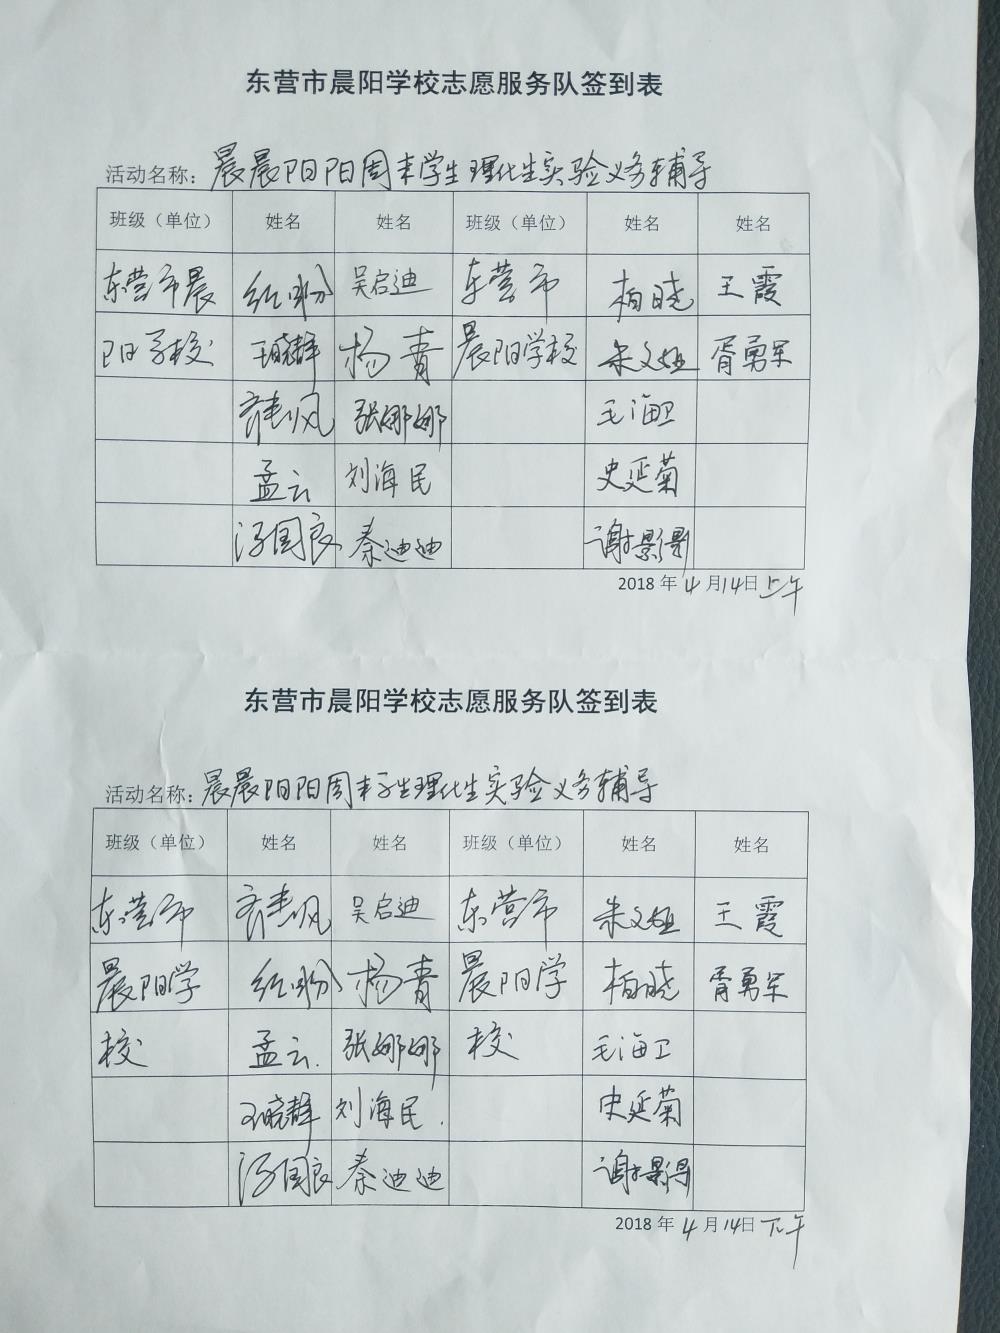 东营市晨阳学校志愿服务队签到表
活动名称：晨晨阳阳周末学生理化生实验义务辅导
班级（单位） 姓名 姓名 班级（单位） 姓名 姓名
东营市晨 吴启迪 东营市 柏晓 王霞
阳学校 王晓静 杨青 晨阳学校 朱文妲 胥勇军
张娜娜 毛海卫
孟云 刘海民 史延菊
汤国良 秦迪迪 谢影影
2018年4月14日上午
东营市晨阳学校志愿服务队签到表
活动名称：晨晨阳阳周末学生理化生实验义务辅导
班级（单位） 姓名 姓名 班级（单位） 姓名 姓名
东营市 吴启迪 东营市 朱文妲 王霞
晨阳学 杨青 晨阳学 柏晓 胥勇军
校 孟云. 张娜娜 校 毛海卫
王晓静 刘海民. 史延菊
汤国良 秦迪迪 谢影影
2018年4月14日下午